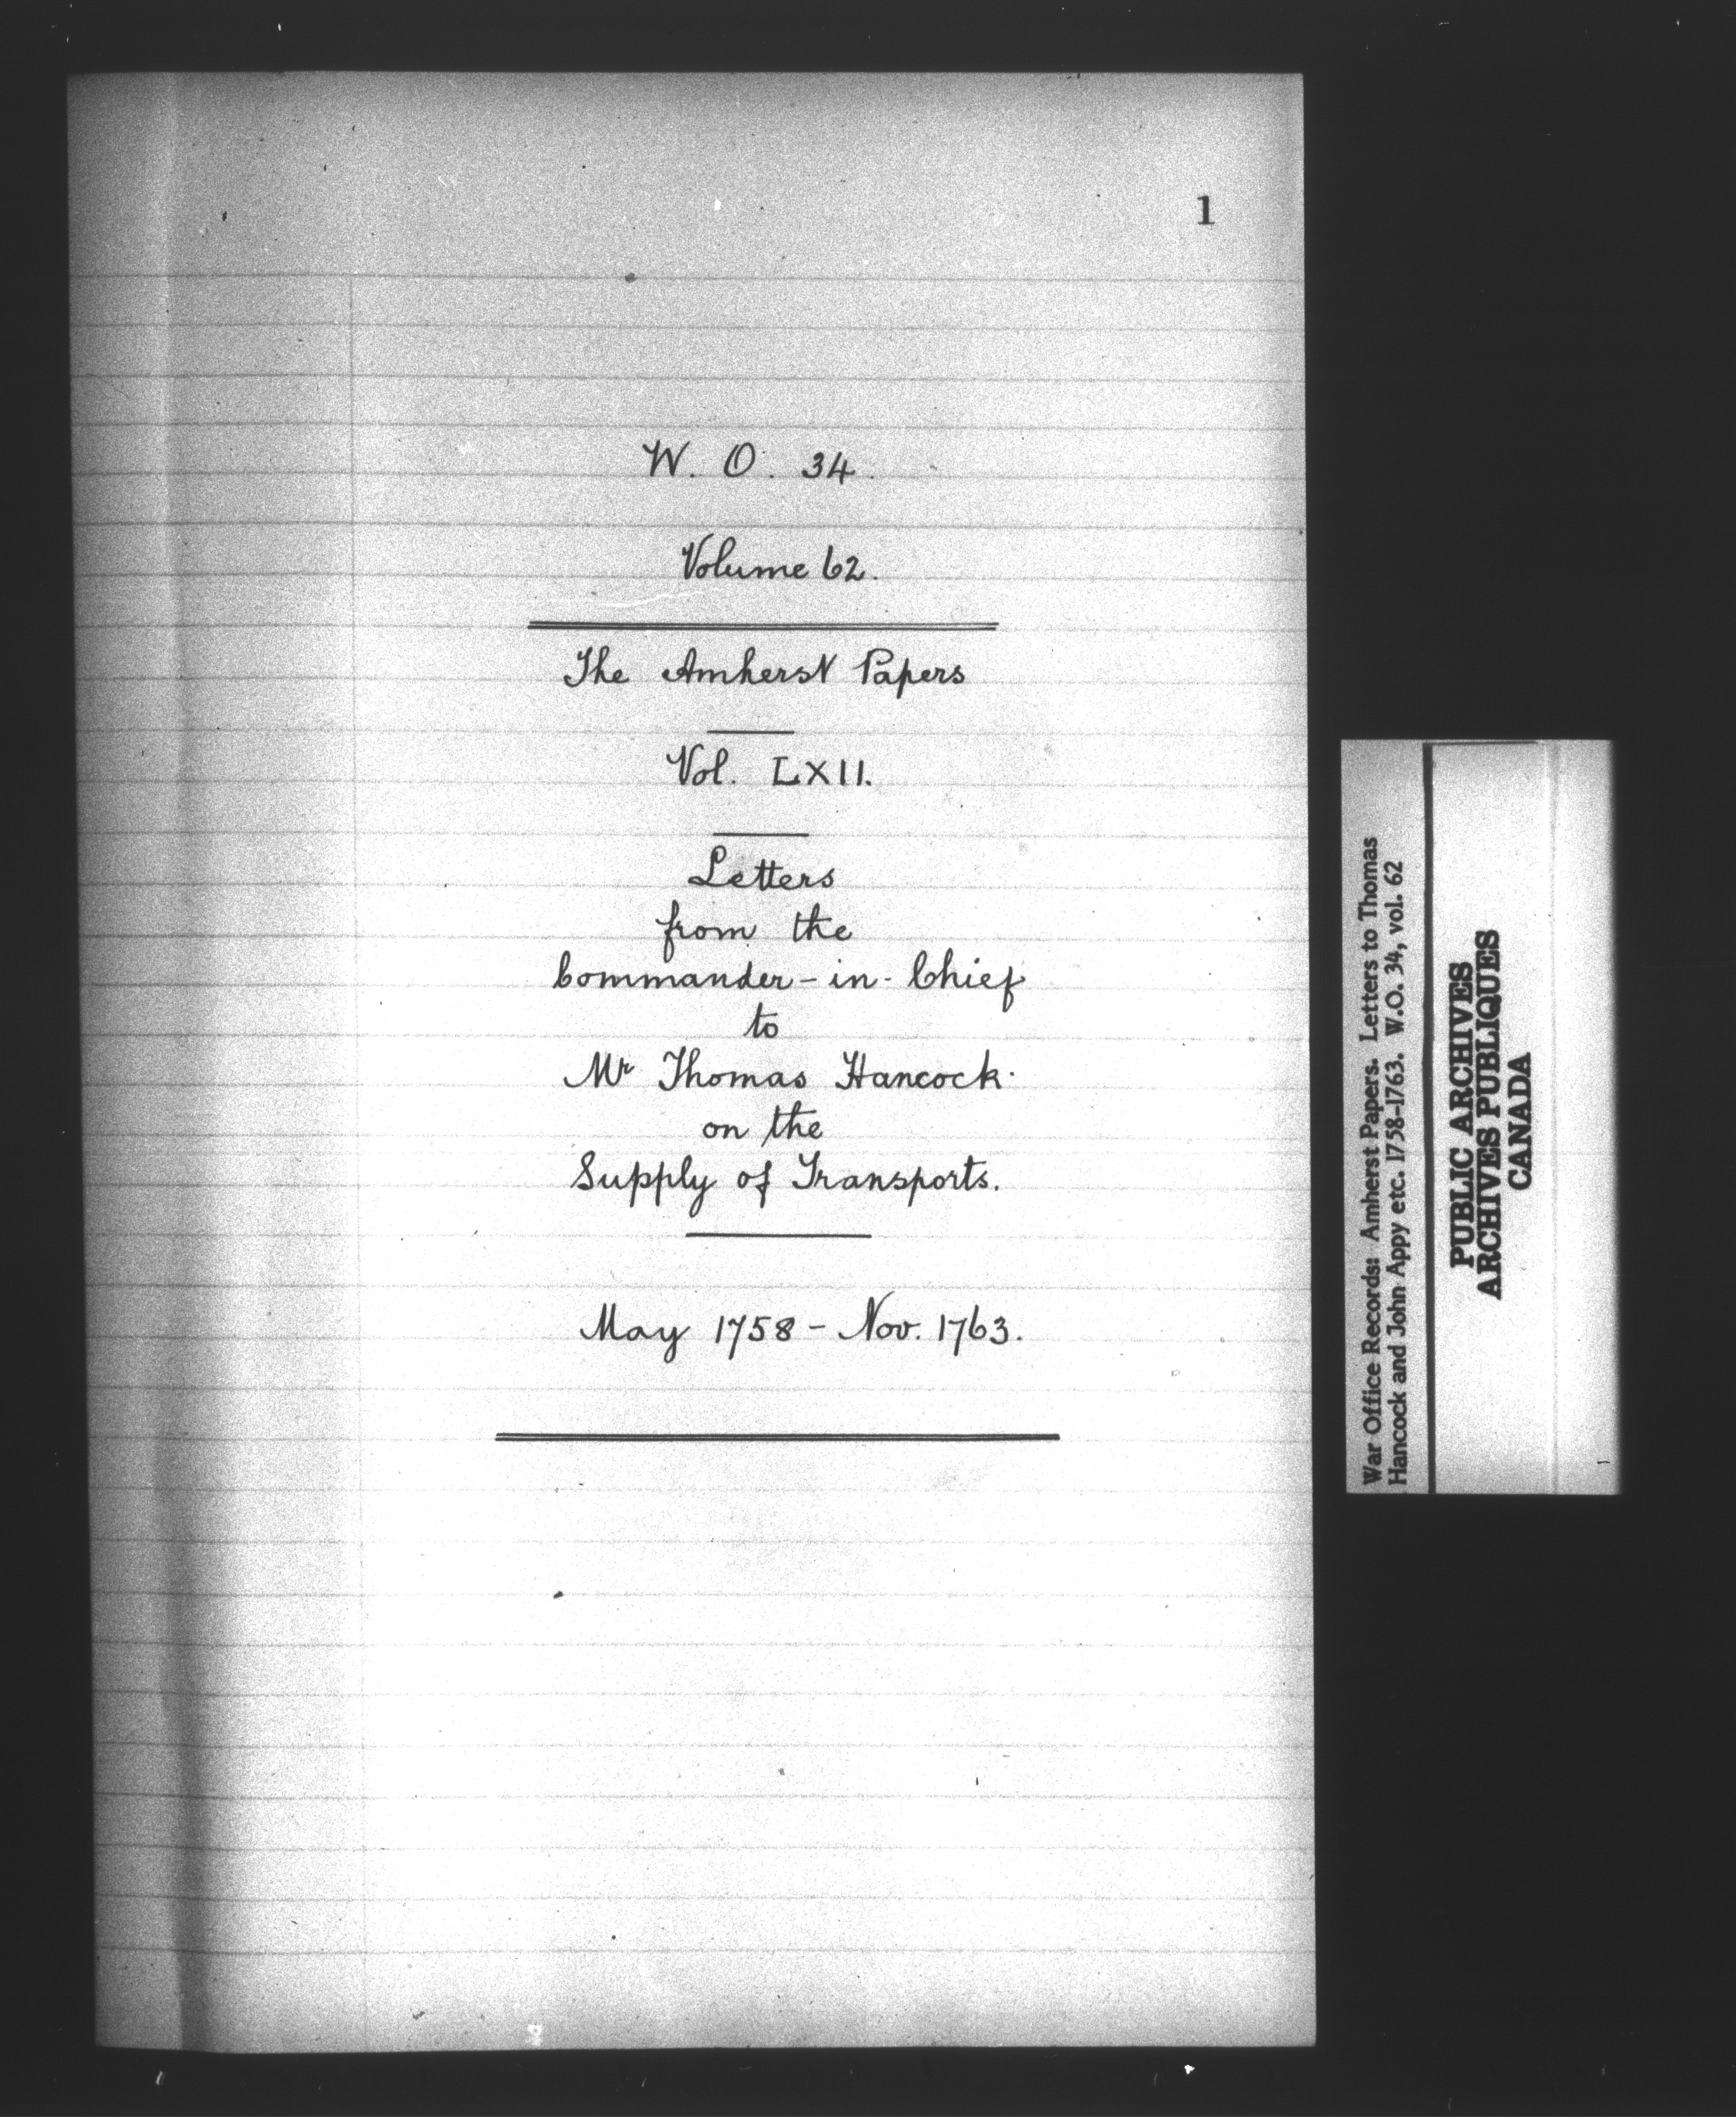 1
W. O. 34.
Volume 62.
The Amherst Papers
Vol. LXII.
Letters
from the
Commander-in-Chief
to
Mr Thomas Hancock.
on the
Supply of Transports.
May 1758 - Nov. 1763.
War Office Records: Amherst Papers. Letters to Thomas
Hancock and John Appy etc. 1758-1763. W.O. 34, vol. 62
PUBLIC ARCHIVES
ARCHIVES PUBLIQUES
CANADA